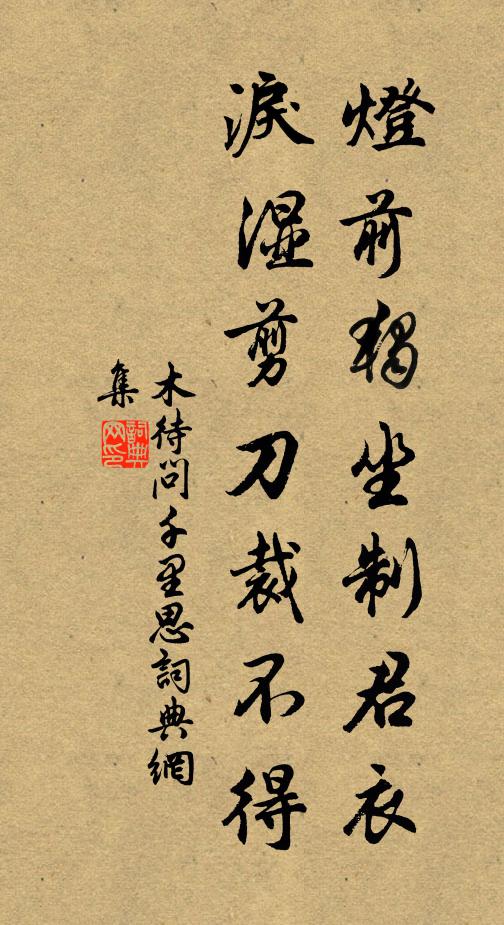 燈前獨坐制君衣
淚濕剪刀裁不得
木待問千里思詞典網
集
詞典網印